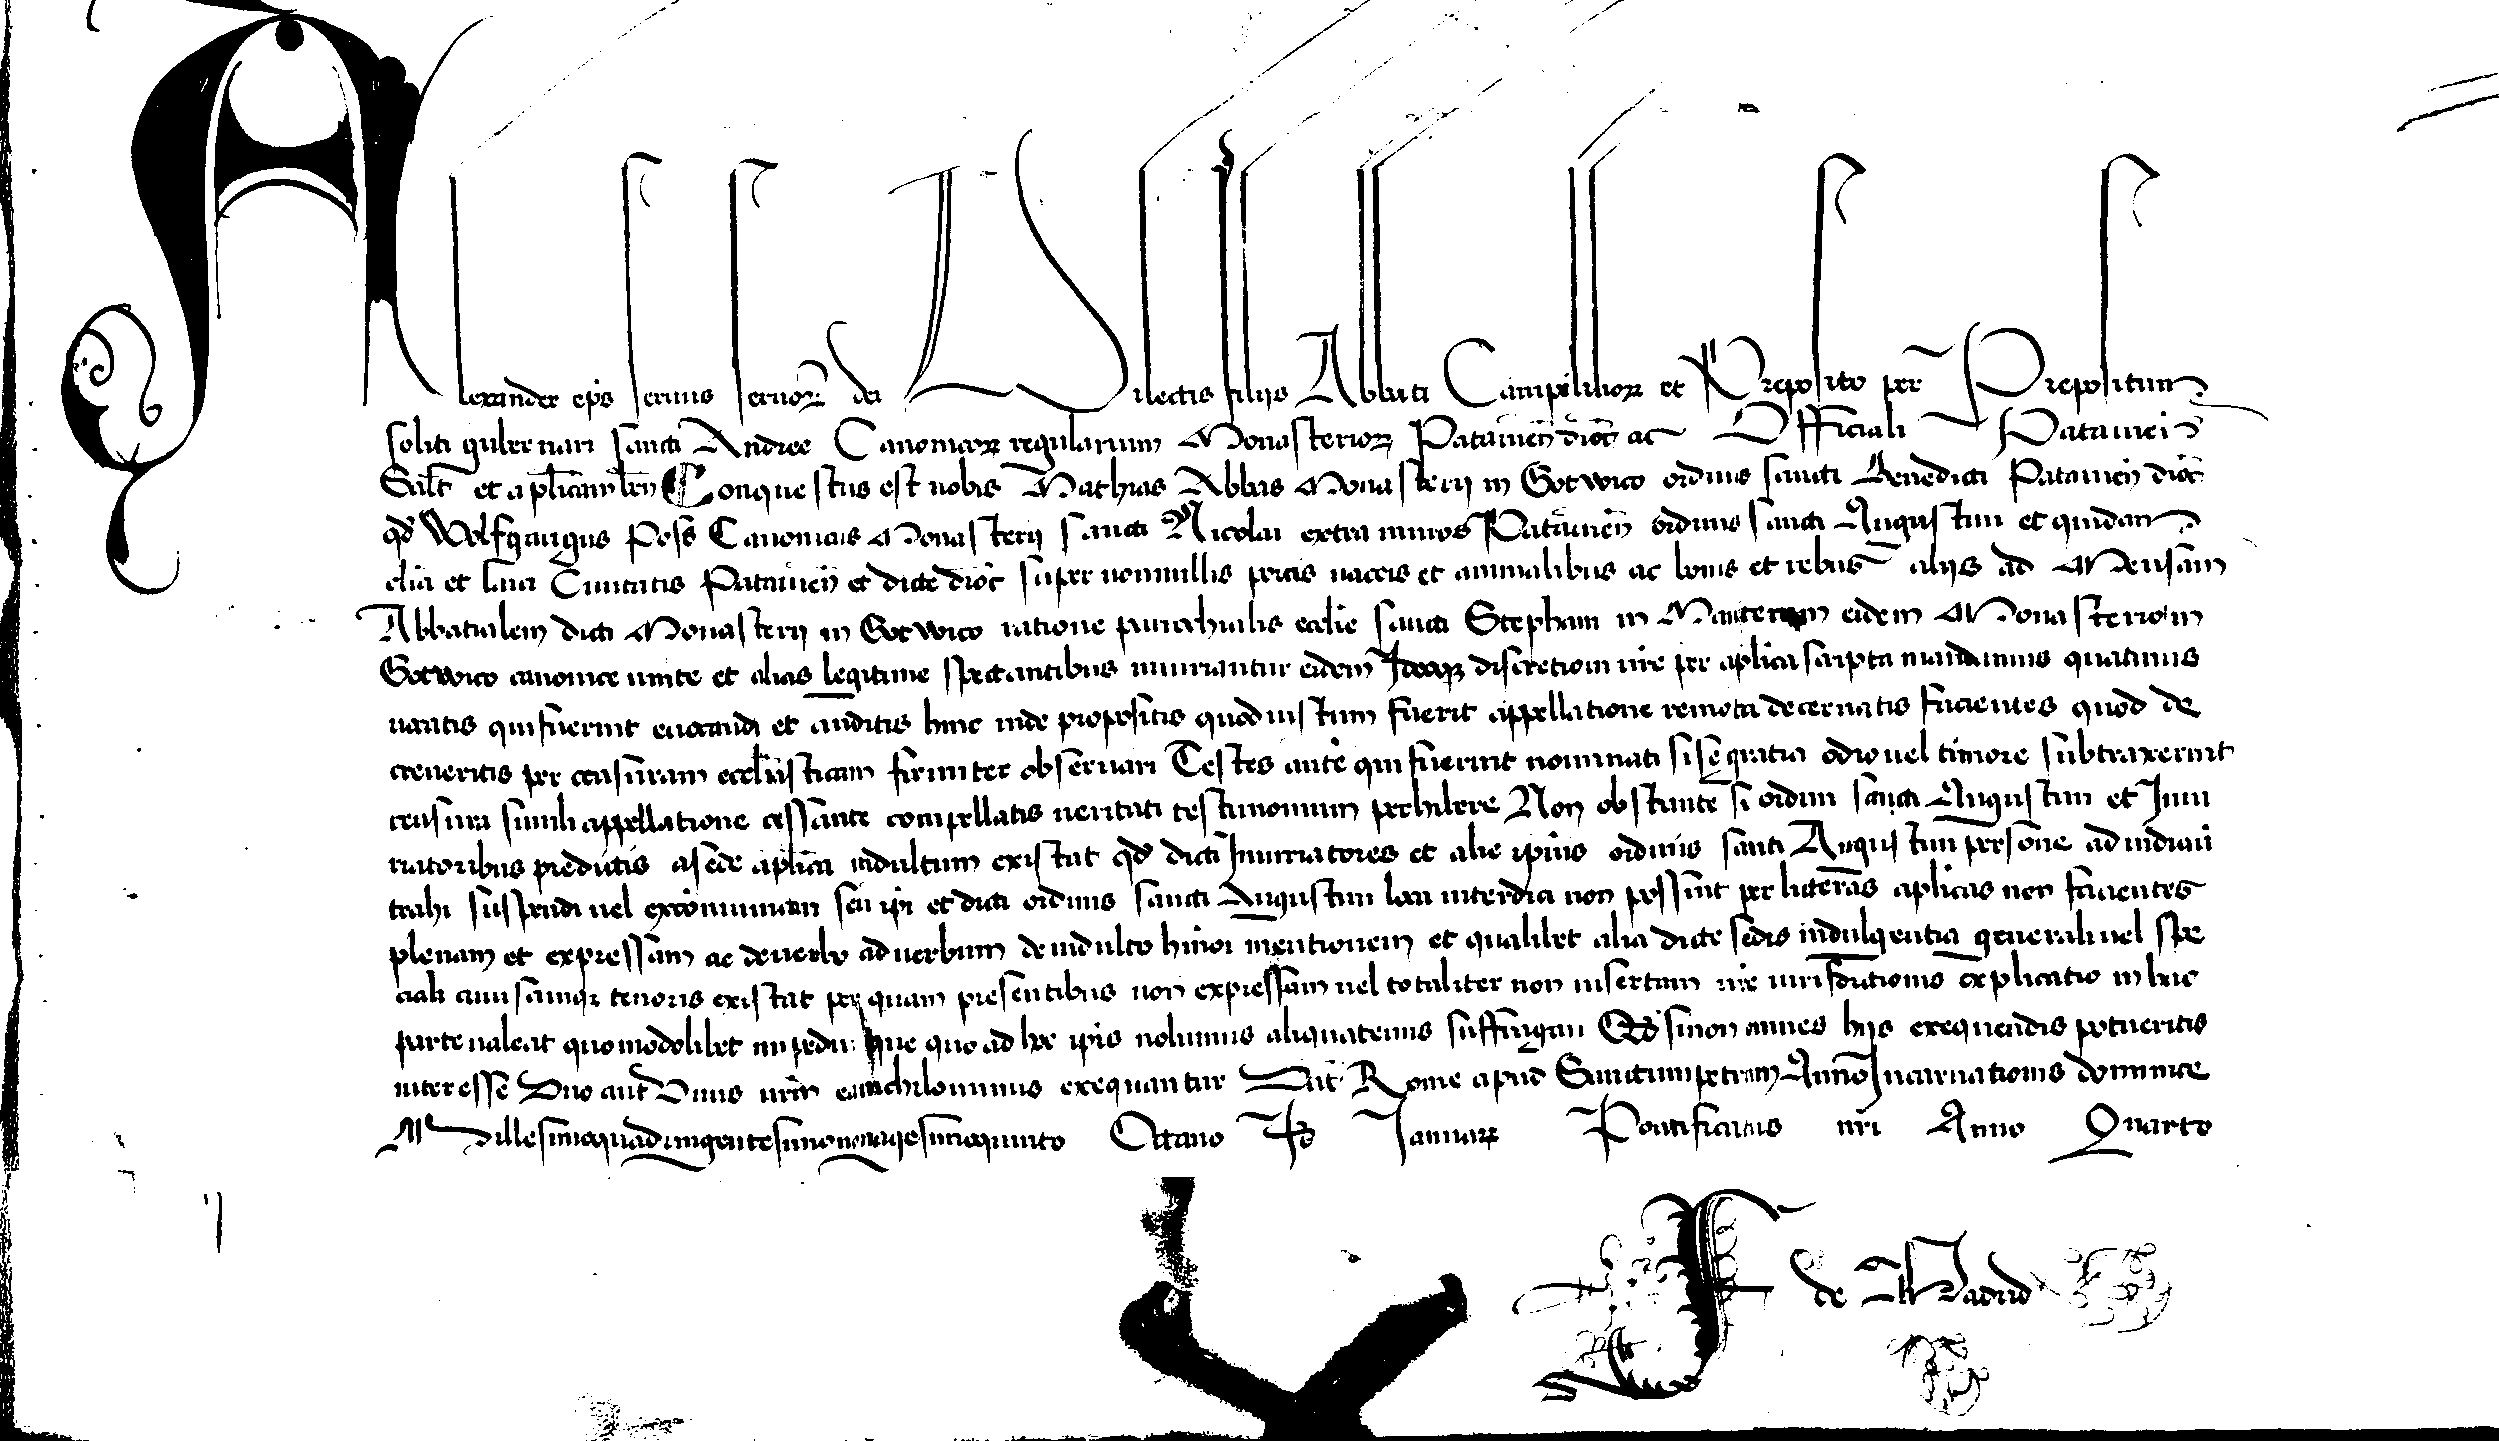 Alexander ep̄s seruus seruoꝝ dei Dilectis filijs Abbati Campililioꝝ et Preposito per Prepositum
soliti gubernari sancti Andree Canonicoꝝ regularium Monasterioꝝ Patauieñ dioc̄ ac Officiali Patauieñ
Salt̄ et ap̄licam ben̄ Conquestus est nobis Mathias Abbas Monasterij in Gotwico ordinis sancti Benedicti Patauieñ dioc̄
qd̄ Wolfgangus Poss Canonicus Monasterij sancti Nicolai extra muros Patauieñ ordinis sancti Augustini et quidam
clici et laici Ciuitatis Patauieñ et dicte dioc̄ super nonnullis porcis vaccis et animalibus ac bonis et rebus alijs ad Mensam
Abbatialem dicti Monasterij in Gotwico ratione parrochialis ecclie sancti Stephani in Mauternn eidem Monasterio in
Gotwico canonice unite et alias legitime spectantibus iniuriantur eidem Ideoqꝫ discretioni vr̄e per ap̄lica scripta mandamus quatinus
uocatis qui fuerint euocandi et auditis hinc inde propositis quod iustum fuerit appellatione remota decernatis facientes quod de
creueritis per censuram eccl̄iasticam firmiter obseruari Testes aute qui fuerint nominati si se gratia odio uel timore subtraxerint
censura simili appellatione cessante compellatis ueritati testimonium perhibere Non obstante si ordini sancti Augustini et Iniu
riatoribus predictis a sede ap̄lica indultum existat qd̄ dicti Iniuriatores et alie ip̄ius ordinis sancti Augustini persone ad iudiciū
trahi suspendi uel excōmunicari seu ip̄i et dicti ordinis sancti Augustini loca interdici non possint per litteras ap̄licas non facientes
plenam et expressam ac de uerbo ad uerbum de indulto hmōi mentionem et qualibet alia dicte sedis indulgentia generali uel spe
ciali cuiuscumqꝫ tenoris existat per quam presentibus non expressam uel totaliter non insertam vr̄e iurisdictionis explicatio in hac
parte ualeat quomodolibet impediri que quo ad hoc ip̄is nolumus aliquatenus suffragari Qd̄ si non omnes hijs exequendis potueritis
interesse Duo aut Vnus vrm̄ ea nichilominus exequantur Dat̄ Rome apud Sanctumpetrum Anno Incarnationis dominice
Millesimoquadringentesimononagesimoquinto Octauo Id̄ Ianuaꝝ Pontificatus nr̄i Anno Quarto
de Madrid